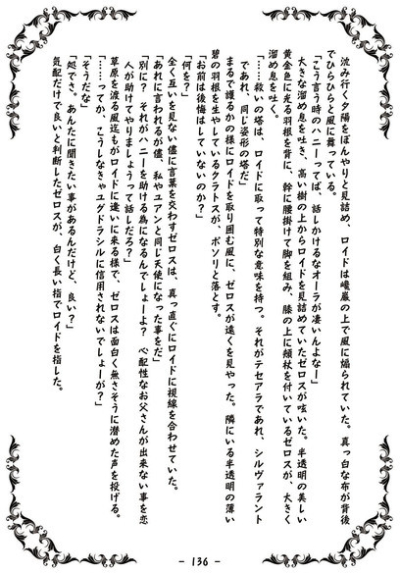 流み行く夕陽をぼんやりと見詰め、ロイドは巉巌の上で風に煽られていた。真っ白な布が背後
でひらひらと風に舞っている。
「こう言う時のハニーってば、話しかけるなオーラが凄いんよなー」
大きな溜め息を吐き、高い樹の上からロイドを見詰めていたゼロスが呟いた。半透明の美しい
黄金色に光る羽根を背に、幹に腰掛けて脚を組み、膝の上に頬杖を付いているゼロスが、大きく
溜め息を吐く。
「……救いの塔は、ロイドに取って特別な意味を持つ。それがテセアラであれ、シルヴァラント
であれ、同じ姿形の塔だ」
まるで護るかの様にロイドを取り囲む風に、ゼロスが遠くを見やった。隣にいる半透明の薄い
碧の羽根を生やしているクラトスが、ポソリと落とす。
「お前は後悔はしていないのか？」
「何を？」
全く互いを見ない儘に言葉を交わすゼロスは、真っ直ぐにロイドに視線を合わせていた。
「あれに言われるが儘、私やユアンと同じ天使になった事をだ」
「別に？　それがハニーを助ける為になるんでしょーよ？　心配性なお父さんが出来ない事を恋
人が助けてやりましょうって話しだろ？」
草原を渡る風迄もがロイドに逢いに来る様で、ゼロスは面白く無さそうに潜めた声を投げる。
「……ってか、こうしなきゃユグドラシルに信用されないでしょーが？」
「そうだな」
「処でさ。あんたに聞きたい事があるんだけど、良い？」
気配だけで良いと判断したゼロスが、白く長い指でロイドを指した。
- 136 -